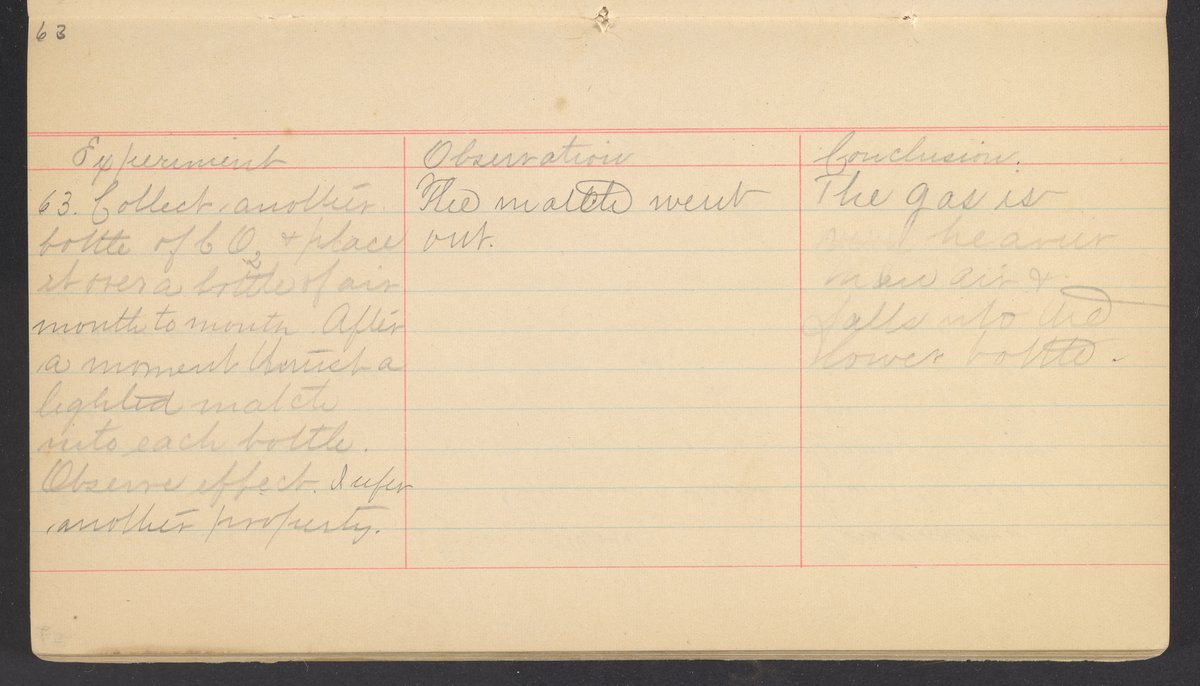 63
Experiment
63. Collect another
bottle of CO2 & place
it over a bottle of air
mouth to mouth. After
a moment thrust a
lighted match
into each bottle.
Observe effect. Infer
another property.
Observation
The match went
out.
Conclusion.
The gas is
heavier
than air &
falls into the
lower bottle.